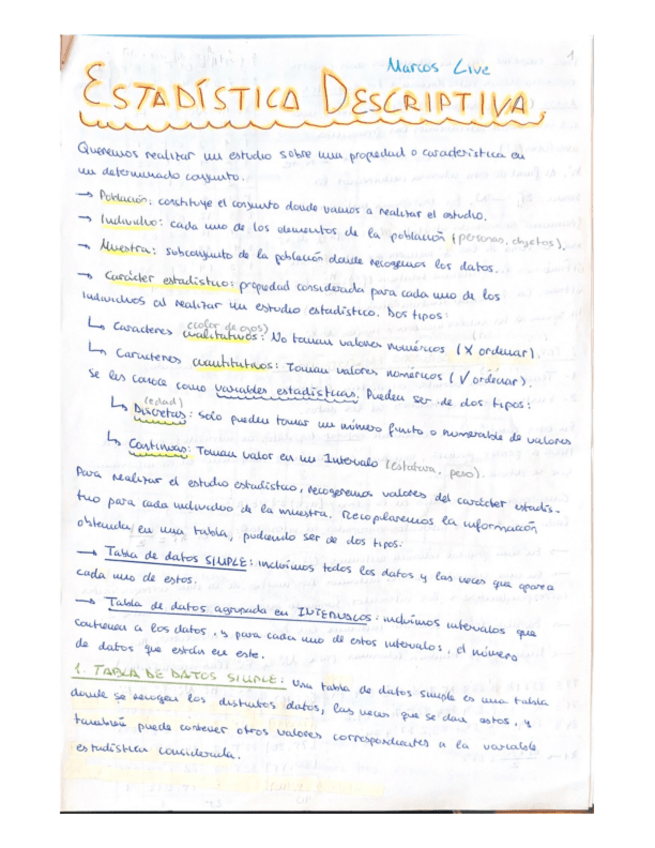 1
Marcos Live
ESTADÍSTICA DESCRIPTIVA
Queremos realizar un estudio sobre una propiedad o característica en
un determinado conjunto.
→ Población: constituye el conjunto donde vamos a realizar el estudio.
→ Individuo: cada uno de los elementos de la población (personas, objetos).
→ Muestra: subconjunto de la población donde recogemos los datos.
→ Carácter estadístico: propiedad considerada para cada uno de los
individuos al realizar un estudio estadístico. Dos tipos:
(color de ojos)
↳ Caracteres cualitativos: No toman valores numéricos (X ordenar).
↳ Caracteres cuantitativos: Toman valores numéricos (√ ordenar).
Se les conoce como variables estadísticas. Pueden ser de dos tipos:
(edad)
↳ Discretas: solo pueden tomar un número finito o numerable de valores
↳ Continuas: Toman valor en un Intervalo (estatura, peso).
Para realizar el estudio estadístico, recogeremos valores del carácter estadís-
tico para cada individuo de la muestra. Recopilaremos la información
obtenida en una tabla, pudiendo ser de dos tipos:
→ Tabla de datos SIMPLE: incluimos todos los datos y las veces que aparece
cada uno de estos.
→ Tabla de datos agrupada en INTERVALOS: incluimos intervalos que
contienen a los datos, y para cada uno de estos intervalos, el número
de datos que están en este.
1. TABLA DE DATOS SIMPLE: Una tabla de datos simple es una tabla
donde se recogen los distintos datos, las veces que se dan estos, y
también puede contener otros valores correspondientes a la variable
estadística considerada.